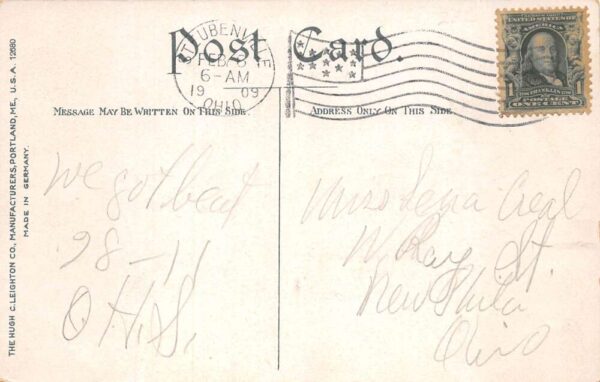 Post Card.
STEUBENVILLE
FEB 8
6-AM
1909
OHIO
MESSAGE MAY BE WRITTEN ON THIS SIDE.
ADDRESS ONLY ON THIS SIDE
UNITED STATES OF AMERICA
1 1
FRANKLIN
POSTAGE
ONE CENT
We got beat
28-11
O.H.S.
Miss Lena
W. Ray St.
New Phila
Ohio
THE HUGH C. LEIGHTON CO., MANUFACTURERS, PORTLAND, ME., U.S.A. 12680
MADE IN GERMANY.